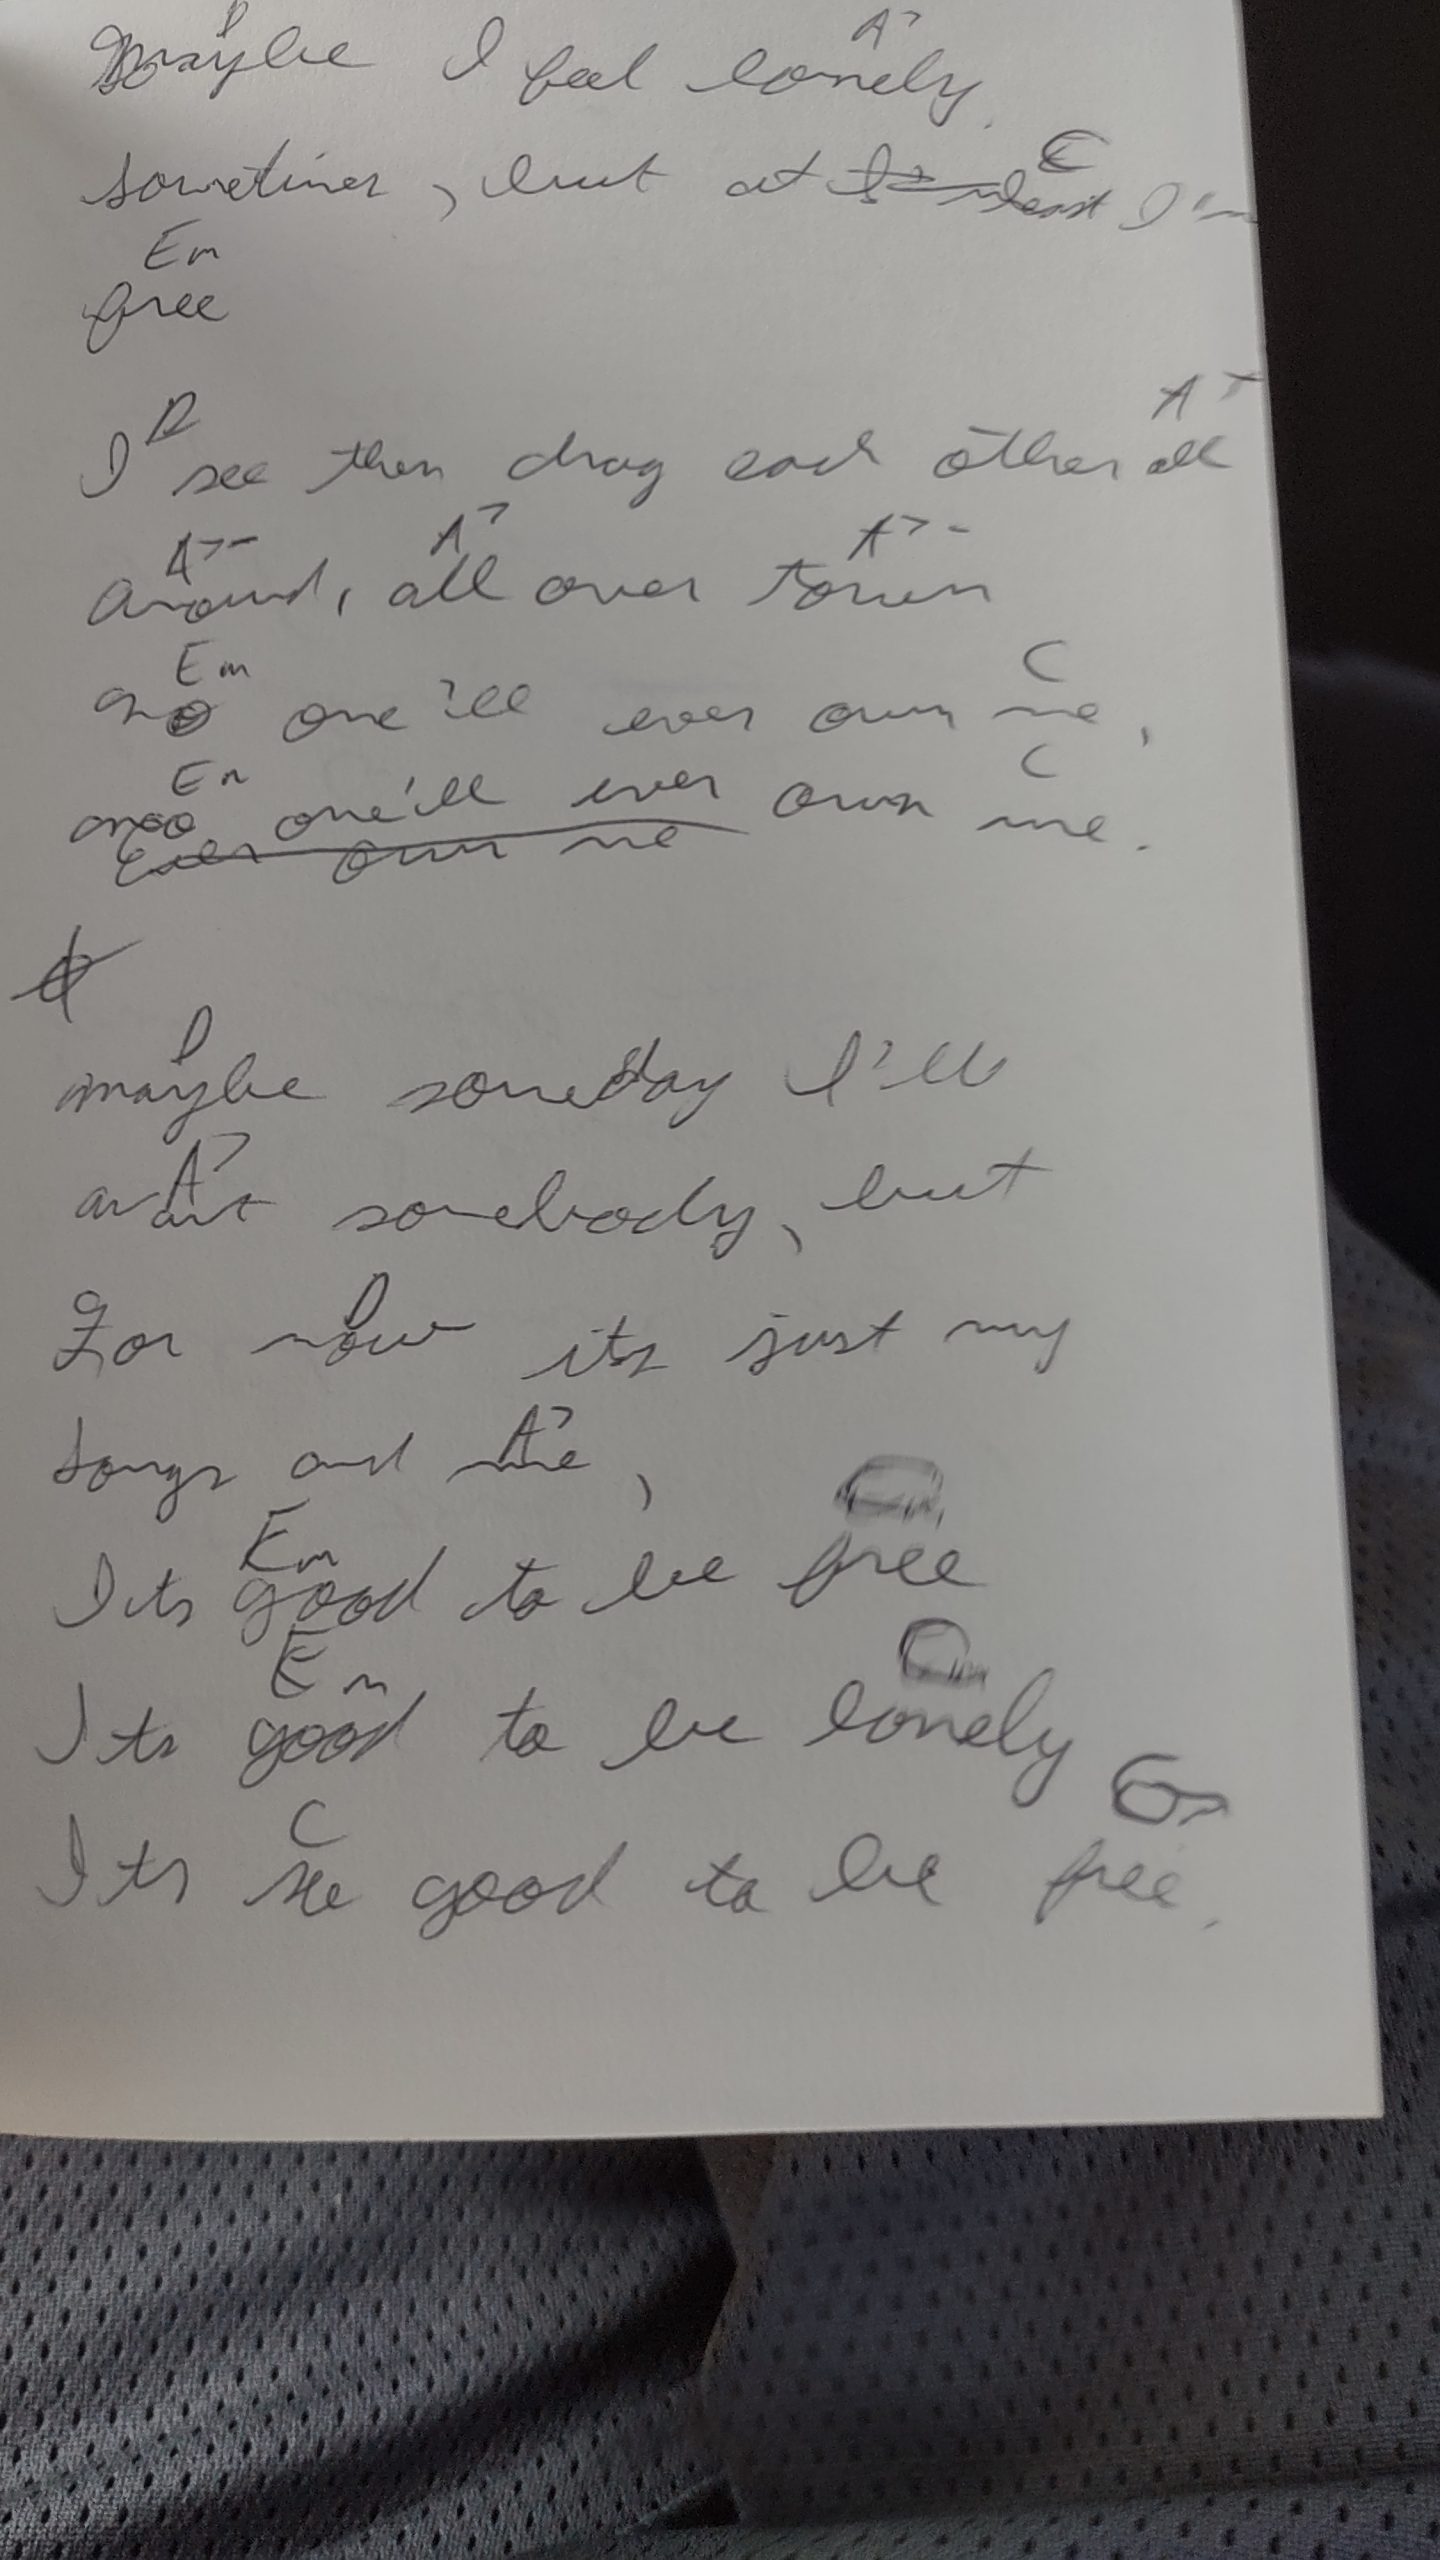 D A7
Maybe I feel lonely
C
sometimes, but at least I'm
Em
free
D A7
I see them drag each other all
A7- A7 A7-
around, all over town
Em C
no one'll ever own me,
Em C
noo one'll ever own me.
Ever own me
D
maybe someday I'll
A7
want somebody, but
D
For now its just my
A7
songs and me,
Em
Its good to be free
Em
Its good to be lonely
C
Its good to be free.